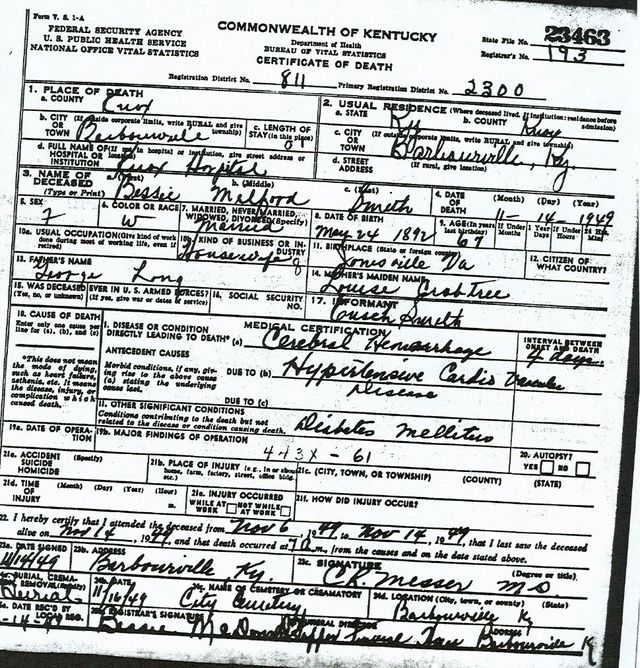 Form V. S. 1-A
FEDERAL SECURITY AGENCY
U. S. PUBLIC HEALTH SERVICE
NATIONAL OFFICE VITAL STATISTICS
COMMONWEALTH OF KENTUCKY
Department of Health
BUREAU OF VITAL STATISTICS
CERTIFICATE OF DEATH
State File No. 23463
Registrar's No. 193
Registration District No. 811 Primary Registration District No. 2300
1. PLACE OF DEATH
a. COUNTY Knox
b. CITY OR TOWN (If outside corporate limits, write RURAL and give township) Barbourville
c. LENGTH OF STAY (in
d. FULL NAME OF (If in hospital or institution, give street address or location) HOSPITAL OR INSTITUTION Knox Hospital
2. USUAL RESIDENCE (Where deceased lived. If institution: residence before admission)
a. STATE Ky b. COUNTY Knox
c. CITY OR TOWN (If outside corporate limits, write RURAL and give township) Barbourville, Ky
d. STREET ADDRESS (If rural, give location)
3. NAME OF DECEASED (Type or Print) a. (First) Bessie b. (Middle) c. (Last) Smith
4. DATE OF DEATH (Month) (Day) (Year) 11- 14 - 1949
5. SEX F
6. COLOR OR RACE W
7. MARRIED, NEVER MARRIED, WIDOWED, DIVORCED (Specify) Married
8. DATE OF BIRTH May 24 1892
9. AGE (In years last birthday) If Under 1 Year Months Days If Under 24 Hrs. Hours Min.
10a. USUAL OCCUPATION (Give kind of work done during most of working life, even if retired)
10b. KIND OF BUSINESS OR INDUSTRY
Housewife
11. BIRTHPLACE (State or foreign country) Jonesville Va
12. CITIZEN OF WHAT COUNTRY?
13. FATHER'S NAME George Long
14. MOTHER'S MAIDEN NAME Louise Crabtree
15. WAS DECEASED EVER IN U. S. ARMED FORCES? (Yes, no, or unknown) (If yes, give war or dates of service)
16. SOCIAL SECURITY NO.
17. INFORMANT Smith
18. CAUSE OF DEATH
Enter only one cause per line for (a), (b), and (c)
*This does not mean the mode of dying, such as heart failure, asthenia, etc. It means the disease, injury, or complication which caused death.
MEDICAL CERTIFICATION
INTERVAL BETWEEN ONSET AND DEATH
I. DISEASE OR CONDITION DIRECTLY LEADING TO DEATH* (a) Cerebral Hemorrhage 4 days
ANTECEDENT CAUSES
Morbid conditions, if any, giving rise to the above cause (a) stating the underlying cause last.
DUE TO (b) Hypertensive Cardio Vascular
Disease
DUE TO (c)
II. OTHER SIGNIFICANT CONDITIONS
Conditions contributing to the death but not related to the disease or condition causing death. Diabetes Mellitus
19a. DATE OF OPERATION
19b. MAJOR FINDINGS OF OPERATION
443X - 61
20. AUTOPSY? YES NO
21a. ACCIDENT SUICIDE HOMICIDE (Specify)
21b. PLACE OF INJURY (e.g., in or about home, farm, factory, street, office bldg., etc.)
21c. (CITY, TOWN, OR TOWNSHIP) (COUNTY) (STATE)
21d. TIME OF INJURY (Month) (Day) (Year) (Hour) m.
21e. INJURY OCCURRED WHILE AT WORK NOT WHILE AT WORK
21f. HOW DID INJURY OCCUR?
22. I hereby certify that I attended the deceased from Nov 6, 1949, to Nov 14, 1949, that I last saw the deceased
alive on Nov 14, 1949, and that death occurred at m., from the causes and on the date stated above.
23a. DATE SIGNED 11/14/49
23b. ADDRESS Barbourville, Ky.
23c. SIGNATURE (Degree or title) C. K. Messer M D.
24a. BURIAL, CREMATION, REMOVAL (Specify) Burial
24b. DATE 11/16/49
24c. NAME OF CEMETERY OR CREMATORY City Cemetery
24d. LOCATION (City, town, or county) (State) Barbourville Ky
DATE REC'D BY LOCAL REG.
REGISTRAR'S SIGNATURE Bessie
FUNERAL DIRECTOR Funeral Home Barbourville K